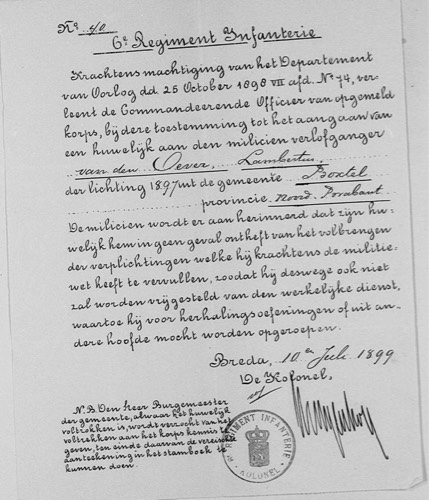 No. 40
6e Regiment Infanterie
Krachtens machtiging van het Departement
van Oorlog dd 25 October 1898 VII afd. No 74, ver-
leent de Commandeerende Officier van opgemeld
korps, bij dere toestemming tot het aangaan van
een huwelijk aan den milicien verlofganger
van den Oever, Lambertus,
der lichting 1897 uit de gemeente Boxtel
provincie Noord-Brabant
De milicien wordt er aan herinnerd dat zijn hu-
welijk hem in geen geval ontheft van het volbrengen
der verplichtingen welke hij krachtens de militie-
wet heeft te vervullen, zoodat hij deswege ook niet
zal worden vrijgesteld van den werkelijke dienst,
waartoe hij voor herhalingsoefeningen of uit an-
dere hoofde mocht worden opgeroepen.
Breda, 10en Juli 1899
De Kolonel,
N.B. Den Heer Burgemeester
der gemeente, alwaar het huwelijk
voltrokken is, wordt verzocht van het
voltrekken aan het korps kennis te
geven, ten einde daarvan de vereischte
aanteekening in het stamboek te
kunnen doen.
REGIMENT INFANTERIE
KOLONEL